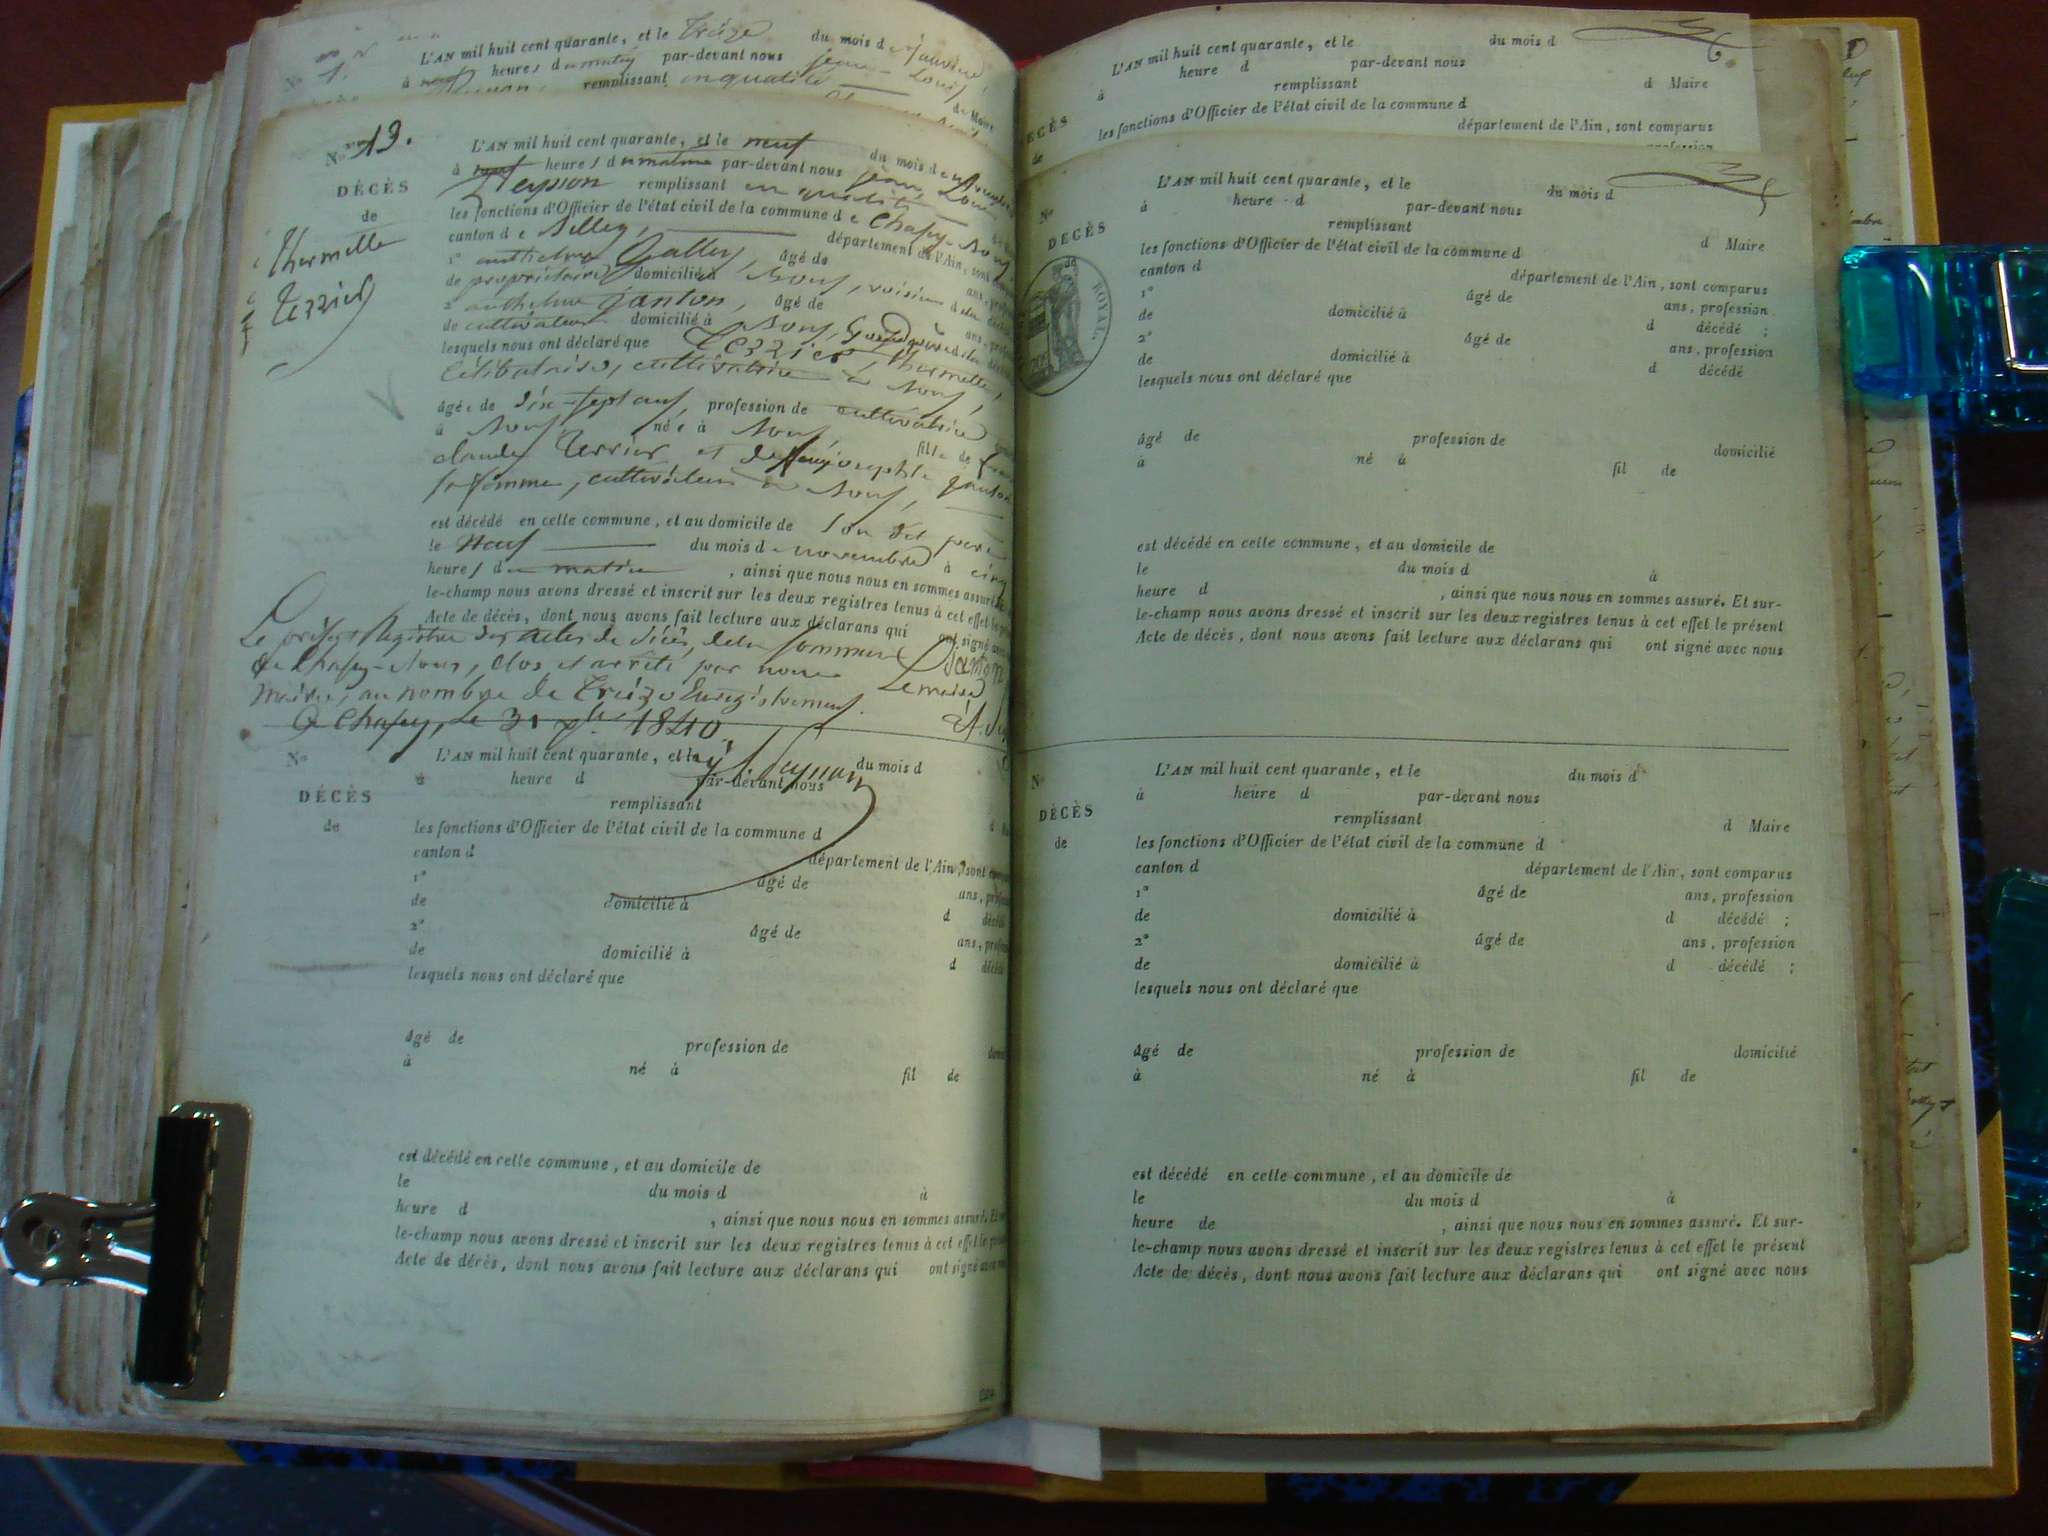 L'AN mil huit cent quarante, et le treize du mois d
heures du matin par-devant nous jean-Louis
remplissant en qualité de Maire
No 13.
DÉCÈS
de
thermette
Terrier
L'AN mil huit cent quarante, et le neuf du mois de novembre
à heures du matin par-devant nous jean Louis
remplissant en qualité
les fonctions d'Officier de l'état civil de la commune de Chazey-Bons
canton de département de l'Ain, sont
1° anthelme âgé de ans,
de propriétaire domicilié à Bons, voisin
2 anthelme janton, âgé de ans,
de cultivateur domicilié à Bons,
lesquels nous ont déclaré que Terrier thermette,
Célibataire, cultivatrice à Bons,
âgée de dix-sept ans, profession de cultivatrice
à Bons née à Bons fille de
claude Terrier et de josephte janton
sa femme, cultivateurs à Bons,
est décédé en celle commune, et au domicile de son dit père
le Neuf du mois de novembre à cinq
heures du matin, ainsi que nous nous en sommes assuré.
le-champ nous avons dressé et inscrit sur les deux registres tenus à cet effet le
Acte de décès, dont nous avons fait lecture aux déclarans qui ont signé
Le présent Registre des actes de décès, de la Commune
de Chazey-Bons, clos et arrêté par nous
maire, au nombre de treize Enregistrement.
Janton
Le maire
A Chazey, le 31 xbre 1840
No
DÉCÈS
de
L'AN mil huit cent quarante, et le du mois d
à heure d par-devant nous
remplissant
les fonctions d'Officier de l'état civil de la commune d
canton d département de l'Ain, sont
1° âgé de ans,
de domicilié à d
2° âgé de ans,
de domicilié à d
lesquels nous ont déclaré que
âgé de profession de
à né à fil de
est décédé en celle commune, et au domicile de
le du mois d à
heure d , ainsi que nous nous en sommes assuré. Et
le-champ nous avons dressé et inscrit sur les deux registres tenus à cet effet le
Acte de décès, dont nous avons fait lecture aux déclarans qui ont signé
L'AN mil huit cent quarante, et le du mois d
à heure d par-devant nous
remplissant d Maire
les fonctions d'Officier de l'état civil de la commune d
département de l'Ain, sont comparus
No
DÉCÈS
de
ROYAL
L'AN mil huit cent quarante, et le du mois d
à heure d par-devant nous
remplissant d Maire
les fonctions d'Officier de l'état civil de la commune d
canton d département de l'Ain, sont comparus
1° âgé de ans, profession
de domicilié à d décédé ;
2° âgé de ans, profession
de domicilié à d décédé
lesquels nous ont déclaré que
âgé de profession de domicilié
à né à fil de
est décédé en celle commune, et au domicile de
le du mois d à
heure d , ainsi que nous nous en sommes assuré. Et sur-
le-champ nous avons dressé et inscrit sur les deux registres tenus à cet effet le présent
Acte de décès, dont nous avons fait lecture aux déclarans qui ont signé avec nous
No
DÉCÈS
de
L'AN mil huit cent quarante, et le du mois d
à heure d par-devant nous
remplissant d Maire
les fonctions d'Officier de l'état civil de la commune d
canton d département de l'Ain, sont comparus
1° âgé de ans, profession
de domicilié à d décédé ;
2° âgé de ans, profession
de domicilié à d décédé ;
lesquels nous ont déclaré que
âgé de profession de domicilié
à né à fil de
est décédé en celle commune, et au domicile de
le du mois d à
heure de , ainsi que nous nous en sommes assuré. Et sur-
le-champ nous avons dressé et inscrit sur les deux registres tenus à cet effet le présent
Acte de décès, dont nous avons fait lecture aux déclarans qui ont signé avec nous